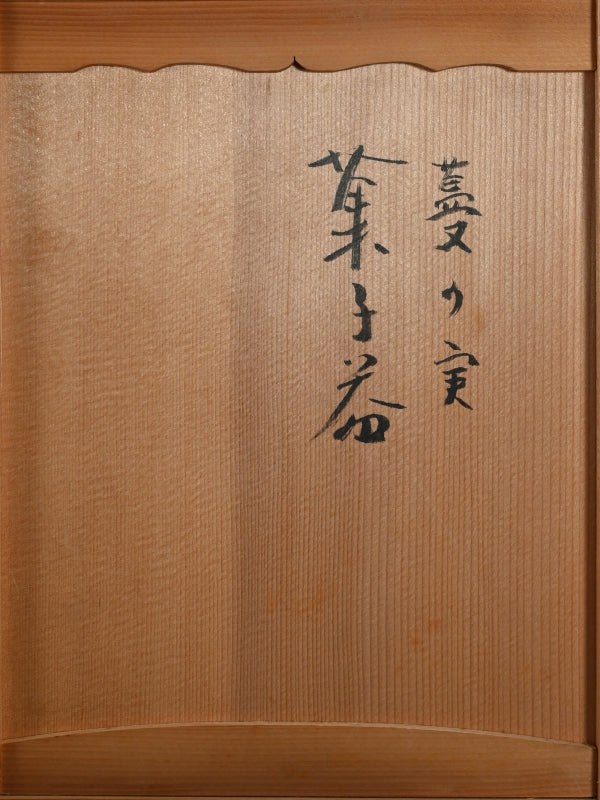 蔓の実
菓子器